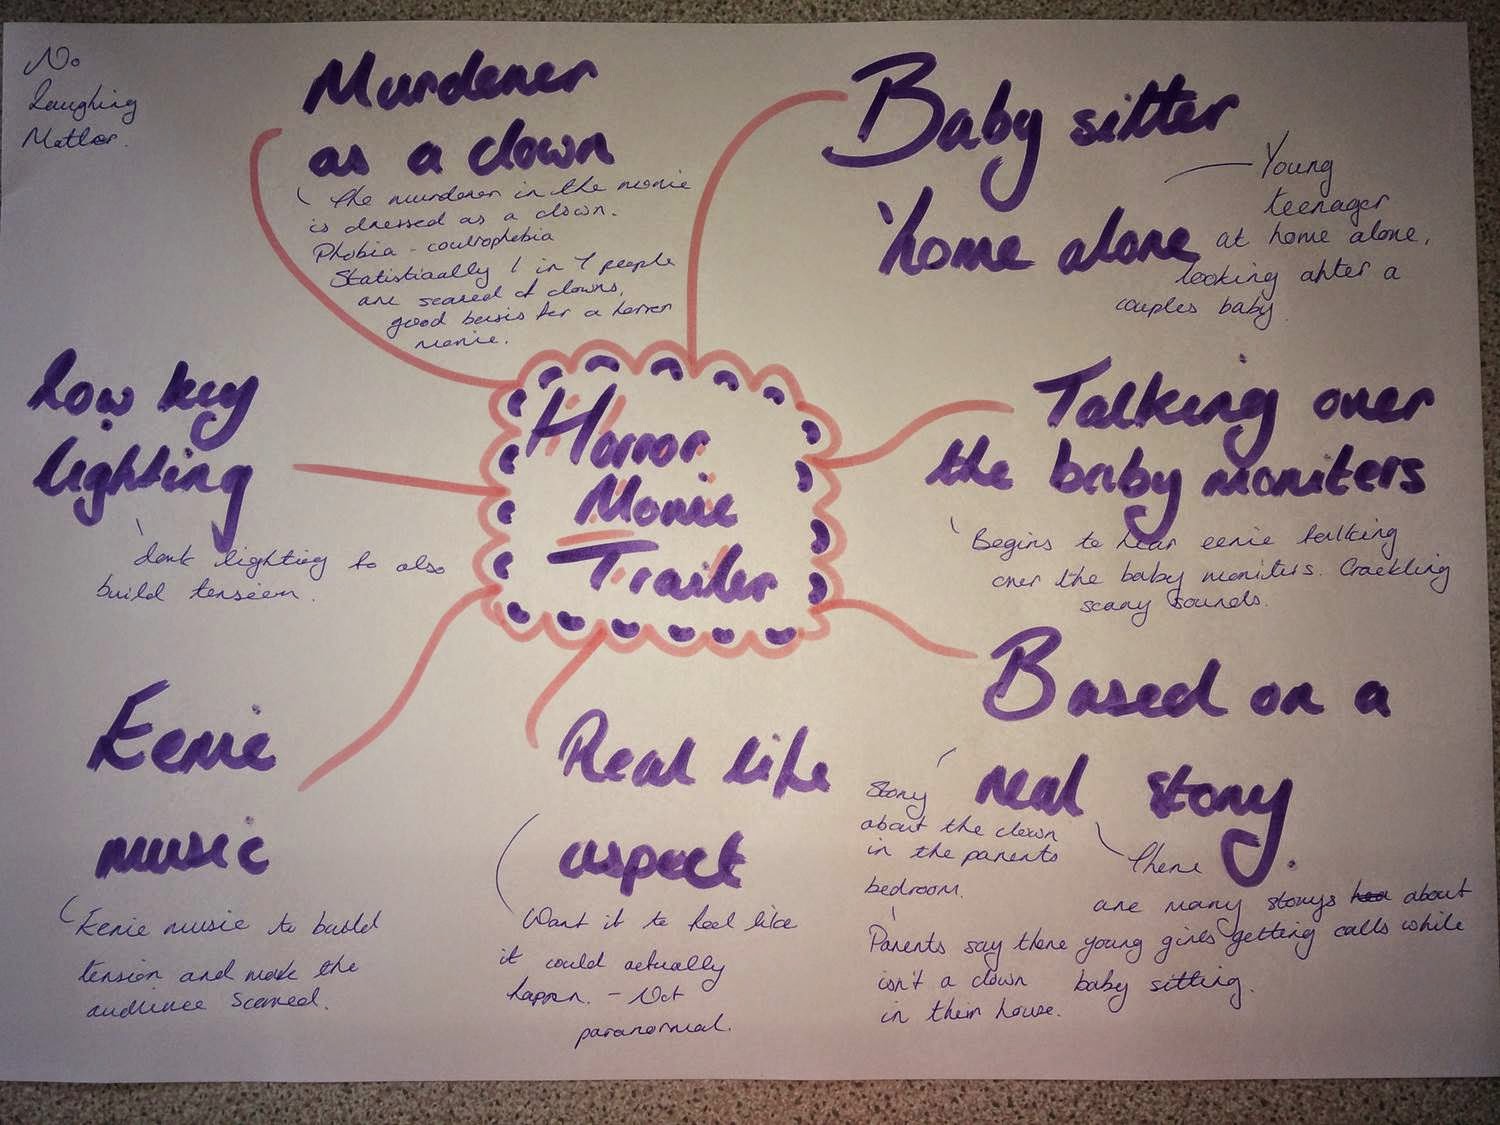 No
Laughing
Matter.
Murderer
as a clown
the murderer in the movie
is dressed as a clown.
Phobia - coulrophobia
Statistically 1 in 7 people
are scared of clowns,
good basis for a horror
movie.
Baby sitter
home alone
Young
teenager
at home alone,
looking after a
couples baby
Low key
lighting
dark lighting to also
build tension.
Horror
Movie
Trailer
Talking over
the baby moniters
Begins to hear eerie talking
over the baby moniters. Crackling
scary sounds.
Eerie
music
Eerie music to build
tension and make the
audience scared.
Real life
aspect
Want it to feel like
it could actually
happen. - Not
paranormal.
Based on a
real story.
Story
about the clown
in the parents
bedroom.
Parents say there
isn't a clown
in their house.
There
are many storys about
young girls getting calls while
baby sitting.